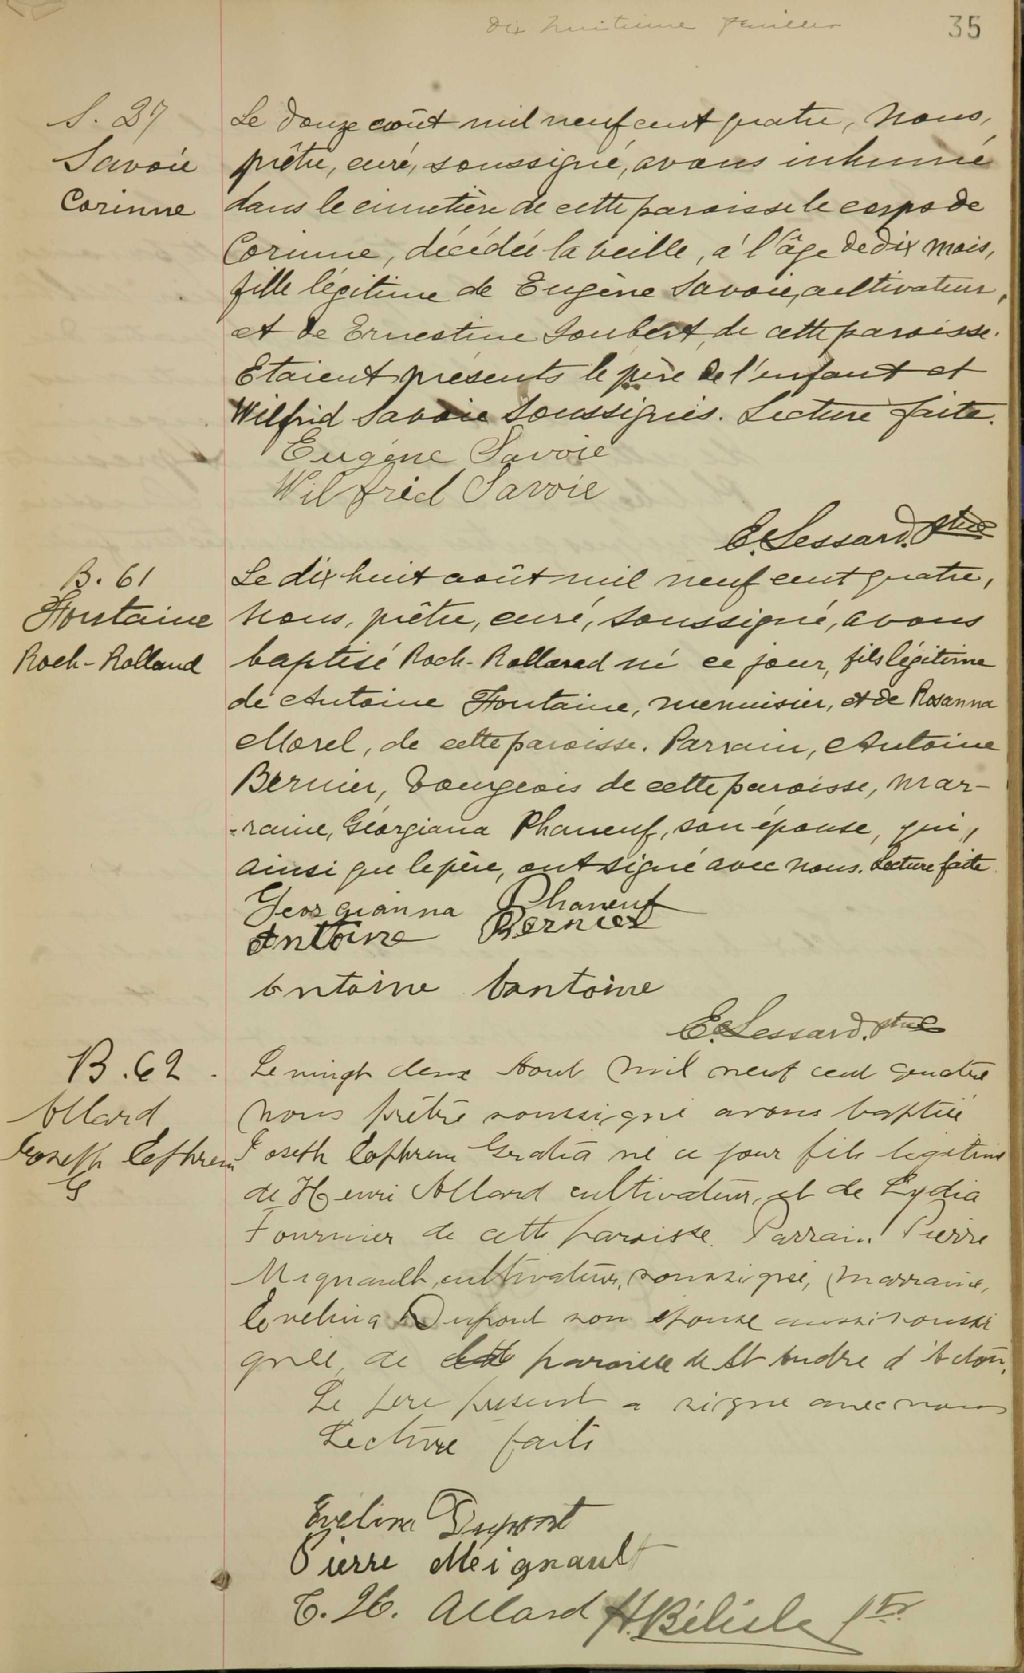 dix huitième feuillet
35
S. 27
Savoie
Corinne
Le douze août mil neuf cent quatre, Nous,
prêtre, curé, soussigné, avons inhumé
dans le cimetière de cette paroisse le corps de
Corinne, décédée la veille, à l'âge de dix mois,
fille légitime de Eugène Savoie, cultivateur,
et de Ernestine Joubert, de cette paroisse.
Etaient présents le père de l'enfant et
Wilfrid Savoie soussignés. Lecture faite.
Eugène Savoie
Wilfrid Savoie
E. Lessard, Ptre
B. 61
Fontaine
Roch-Rolland
Le dix huit août mil neuf cent quatre,
Nous, prêtre, curé, soussigné, avons
baptisé Roch-Rolland né ce jour, fils légitime
de Antoine Fontaine, menuisier, et de Rosanna
Morel, de cette paroisse. Parrain, Antoine
Bernier, bourgeois de cette paroisse, mar-
-raine, Géorgiana Phaneuf, son épouse, qui,
ainsi que le père, ont signé avec nous. Lecture faite.
Georgianna Phaneuf
Antoine Bernier
Antoine
E. Lessard, Ptre
B. 62
Allard
Joseph Ephrem
G
Le vingt deux Aout mil neuf cent quatre
nous prêtre soussigné avons baptisé
Joseph Ephrem né ce jour fils legitime
de Henri Allard cultivateur, et de Lydia
Fournier de cette paroisse. Parrain Pierre
Mignault, cultivateur, soussigné, marraine,
Evelina Dupont son épouse aussi soussi
gnée, de paroisse de St Andre d'Acton.
Le pere present a signe avec nous
Lecture faite
Evélina Dupont
Pierre Meignault
Allard H. Bélisle ptr